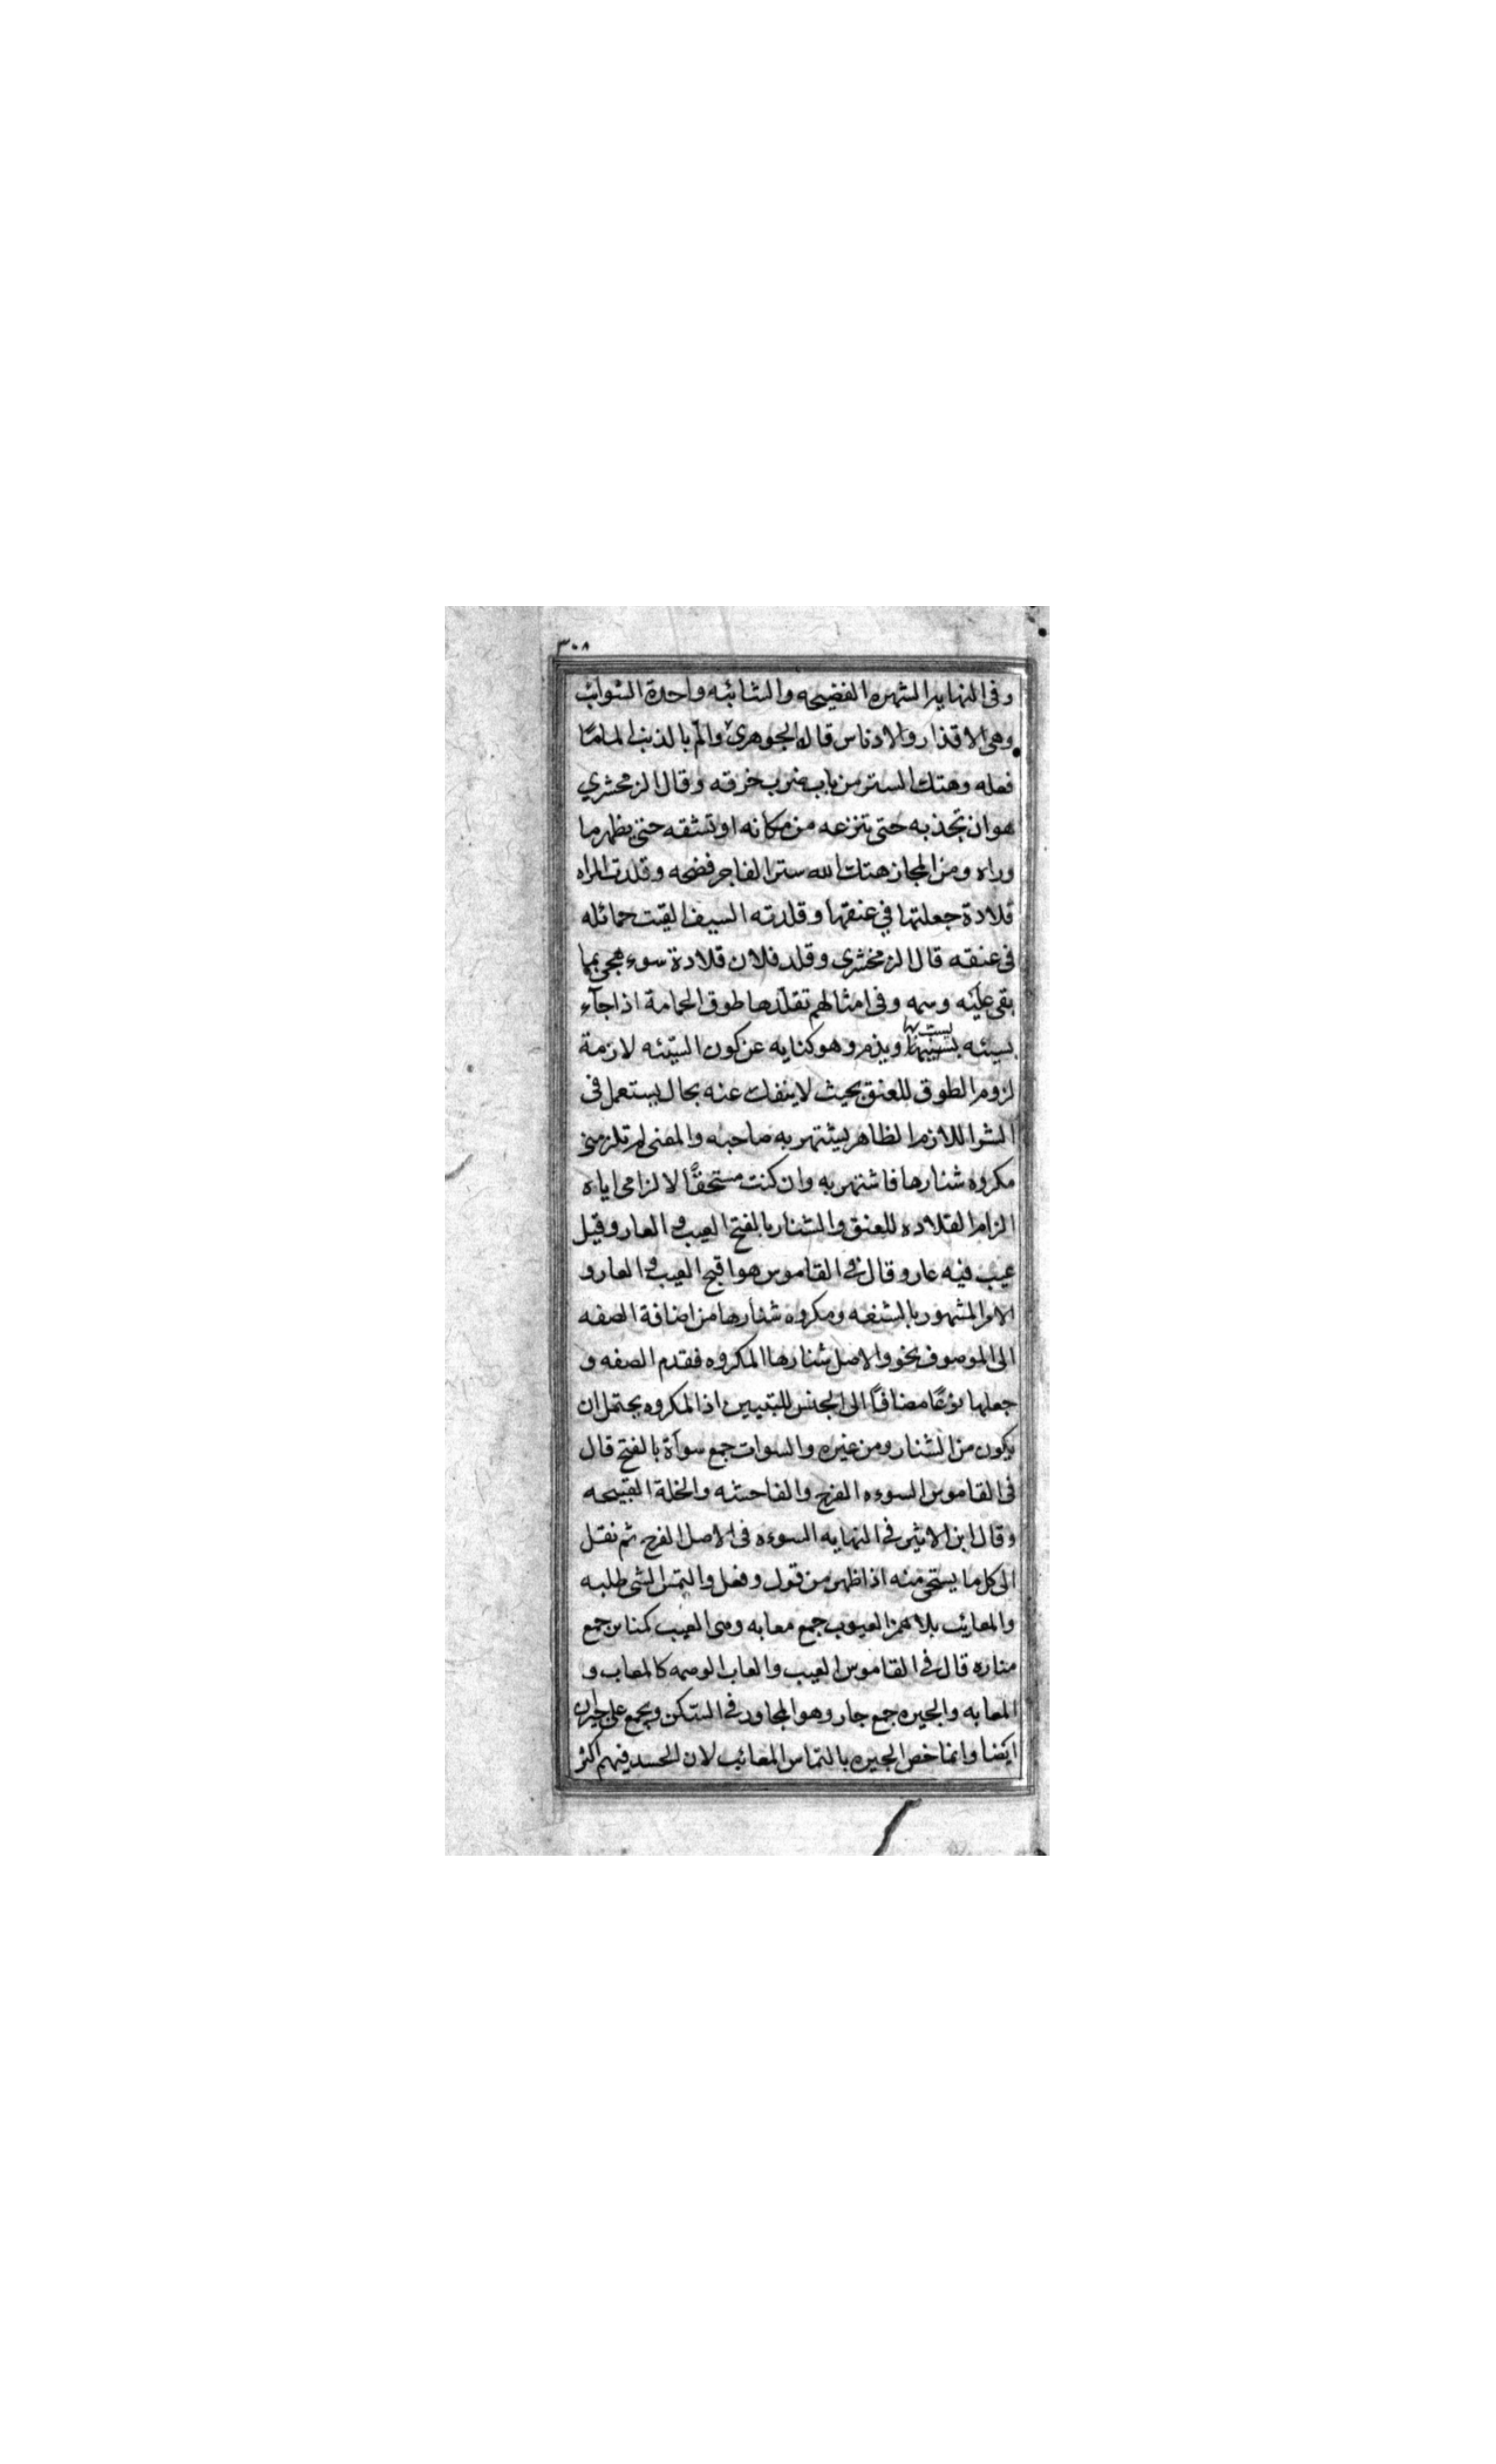 ٣٠٨
وفى النهايه الشهره الفضيحه والشائبه واحدة الشوائب
وهى الاقذار والادناس قاله الجوهرى والم بالذنب الماما
فعله وهتك الستر من باب ضرب خرقه وقال الزمخشري
هو ان تجذبه حتى تنزعه من مكانه او تشقه حتى يظهر ما
وراه ومن المجاز هتك الله ستر الفاجر فضحه وقلدت المراه
قلادة جعلتها في عنقها وقلدته السيف القيت حمائله
فى عنقه قال الزمخشرى وقلد فلان قلادة سوء هجى بما
بقى عليه وسمه وفى امثالهم تقلدها طوق الحمامة اذا جآء
بسيئه يسب بها ويذم وهو كنايه عن كون السيّئه لازمة
لزوم الطوق للعنق بحيث لا ينفك عنه بحال يستعمل فى
الشر اللازم الظاهر يشتهر به صاحبه والمعنى لم تلزمنى
مكروه شنارها فاشتهر به وان كنت مستحقًّا لالزامى اياه
الزام القلاده للعنق والشنار بالفتح العيب و العار وقيل
عيب فيه عار وقال في القاموس هو اقبح العيب و العار و
الامر المشهور بالشنعه ومكروه شنارها من اضافة الصفه
الى الموصوف نحو والاصل شنارها المكروه فقدم الصفه و
جعلها نوعًا مضافًا الى الجنس للتبيين اذ المكروه يحتمل ان
يكون من الشنار ومن غيره والسوات جمع سوأة بالفتح قال
فى القاموس السوءه الفرج والفاحشه والخلة القبيحه
وقال ابن الاثير في النهايه السوءه فى الاصل الفرج ثم نقل
الى كل ما يستحى منه اذا ظهر من قول وفعل والتمس الشى طلبه
والمعايب بلا همز العيوب جمع معابه ومى العيب كمناير جمع
مناره قال في القاموس العيب والعاب الوصمه كالمعاب و
المعابه والجيره جمع جار وهو المجاور في السّكن ويجمع على جيران
ايضا وانما خص الجيره بالتماس المعائب لان الحسد فيهم اكثر